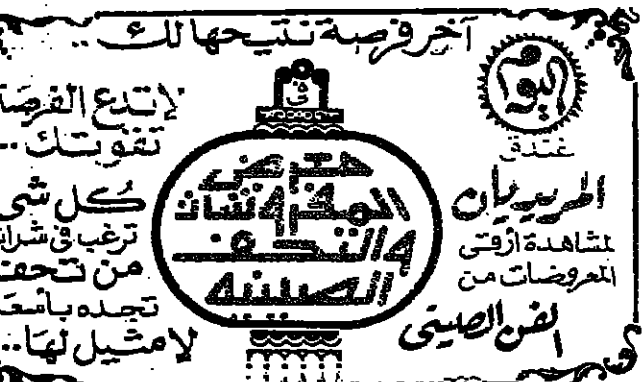 آخر فرصة نتيحها لك ..
اليوم
فندق
المريديان
لمشاهدة أرقى
المعروضات من
الفن الصينى
فى
معرض
المفروشات
والتحف
الصينيه
لا تدع الفرصة
تفوتك ..
كل شئ
ترغب فى شرائ
من تحف
تجده بأسعا
لا مثيل لها ..